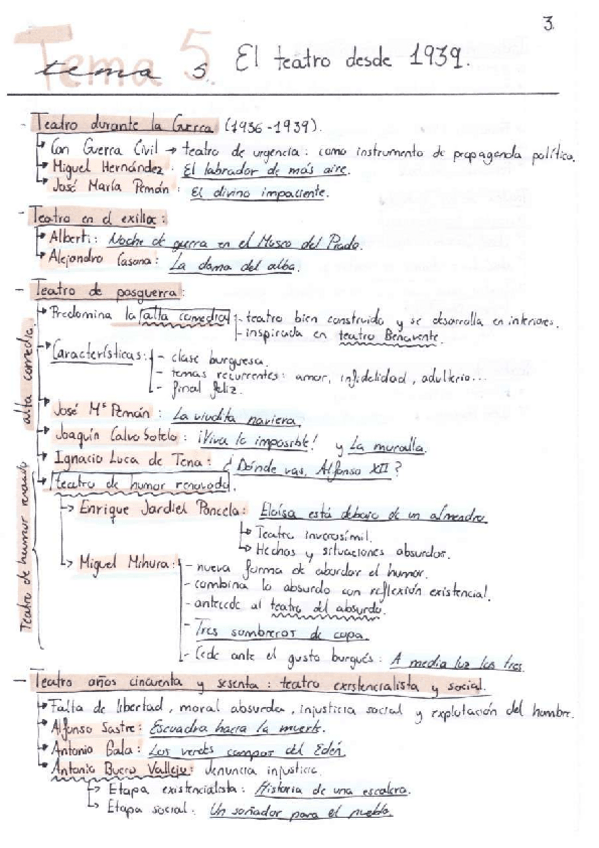 3.
Tema 5
tema 5. El teatro desde 1939.
- Teatro durante la Guerra (1936-1939).
Con Guerra Civil → teatro de urgencia: como instrumento de propaganda política.
Miguel Hernández: El labrador de más aire.
José María Pemán: El divino impaciente.
- Teatro en el exilio:
Alberti: Noche de guerra en el Museo del Prado.
Alejandro Casona: La dama del alba.
- Teatro de posguerra:
alta comedia.
Predomina la alta comedia - teatro bien construido y se desarrolla en interiores.
- inspirada en teatro Benavente.
Características: - clase burguesa.
- temas recurrentes: amor, infidelidad, adulterio...
- final feliz.
José Mª Pemán: La viudita naviera.
Joaquín Calvo Sotelo: ¡Viva lo imposible! y La muralla.
Ignacio Luca de Tena: ¿Dónde vas, Alfonso XII?
Teatro de humor renovado
teatro de humor renovado.
Enrique Jardiel Poncela: Eloísa está debajo de un almendro
Teatro inverosímil.
Hechos y situaciones absurdas.
Miguel Mihura: - nueva forma de abordar el humor.
- combina lo absurdo con reflexión existencial.
- antecede al teatro del absurdo.
- Tres sombreros de copa.
- Cede ante el gusto burgués: A media luz los tres
- Teatro años cincuenta y sesenta: teatro existencialista y social.
Falta de libertad, moral absurda, injusticia social y explotación del hombre.
Alfonso Sastre: Escuadra hacia la muerte.
Antonio Gala: Los verdes campos del Edén.
Antonio Buero Vallejo: denuncia injusticia.
Etapa existencialista: Historia de una escalera.
Etapa social: Un soñador para el pueblo.